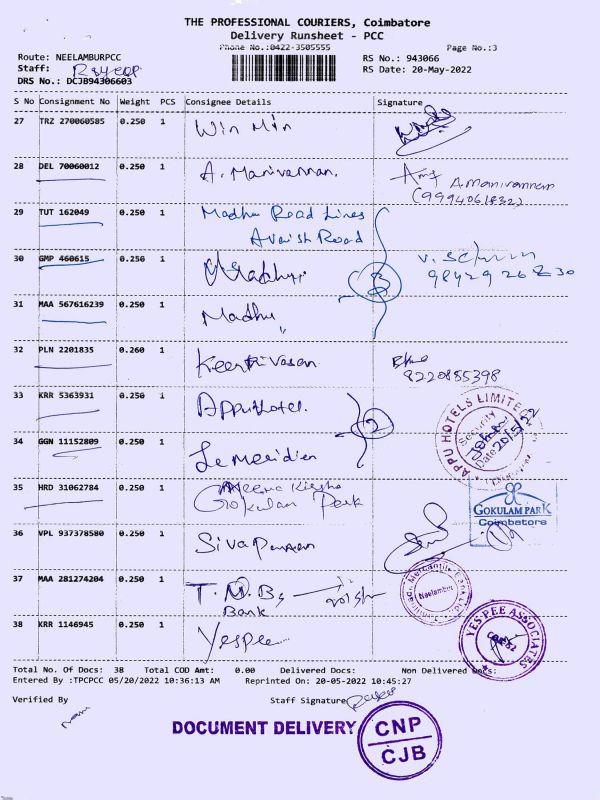 THE PROFESSIONAL COURIERS, Coimbatore
Delivery Runsheet - PCC
Phone No.:0422-3505555
Page No.:3
Route: NEELAMBURPCC
RS No.: 943066
Staff:
RS Date: 20-May-2022
DRS No.: DCJB94306603
S No Consignment No Weight PCS Consignee Details Signature
27 TRZ 270060585 0.250 1 Win Min
28 DEL 70060012 0.250 1 A. Manivannan. A. Manivannan
(9994061832)
29 TUT 162049 0.250 1 Madhu Road Lines
Avarish Road
30 GMP 460615 0.250 1 Madhu
31 MAA 567616239 0.250 1 Madhu
32 PLN 2201835 0.260 1 Keerthivasan
8220855398
33 KRR 5363931 0.250 1 Appu Hotel.
APPU HOTELS LIMITED
Security
Date 20/5/22
34 GGN 11152809 0.250 1 Le meridien
35 HRD 31062784 0.250 1
Gokulam Park
GOKULAM PARK
Coimbatore
36 VPL 937378580 0.250 1
37 MAA 281274204 0.250 1 T.M.B,
Bank
Neelambur
38 KRR 1146945 0.250 1 Yespee
YES PEE ASSOCIATES
Total No. Of Docs: 38 Total COD Amt: 0.00 Delivered Docs: Non Delivered Docs:
Entered By :TPCPCC 05/20/2022 10:36:13 AM Reprinted On: 20-05-2022 10:45:27
Verified By
Staff Signature
DOCUMENT DELIVERY
CNP
CJB